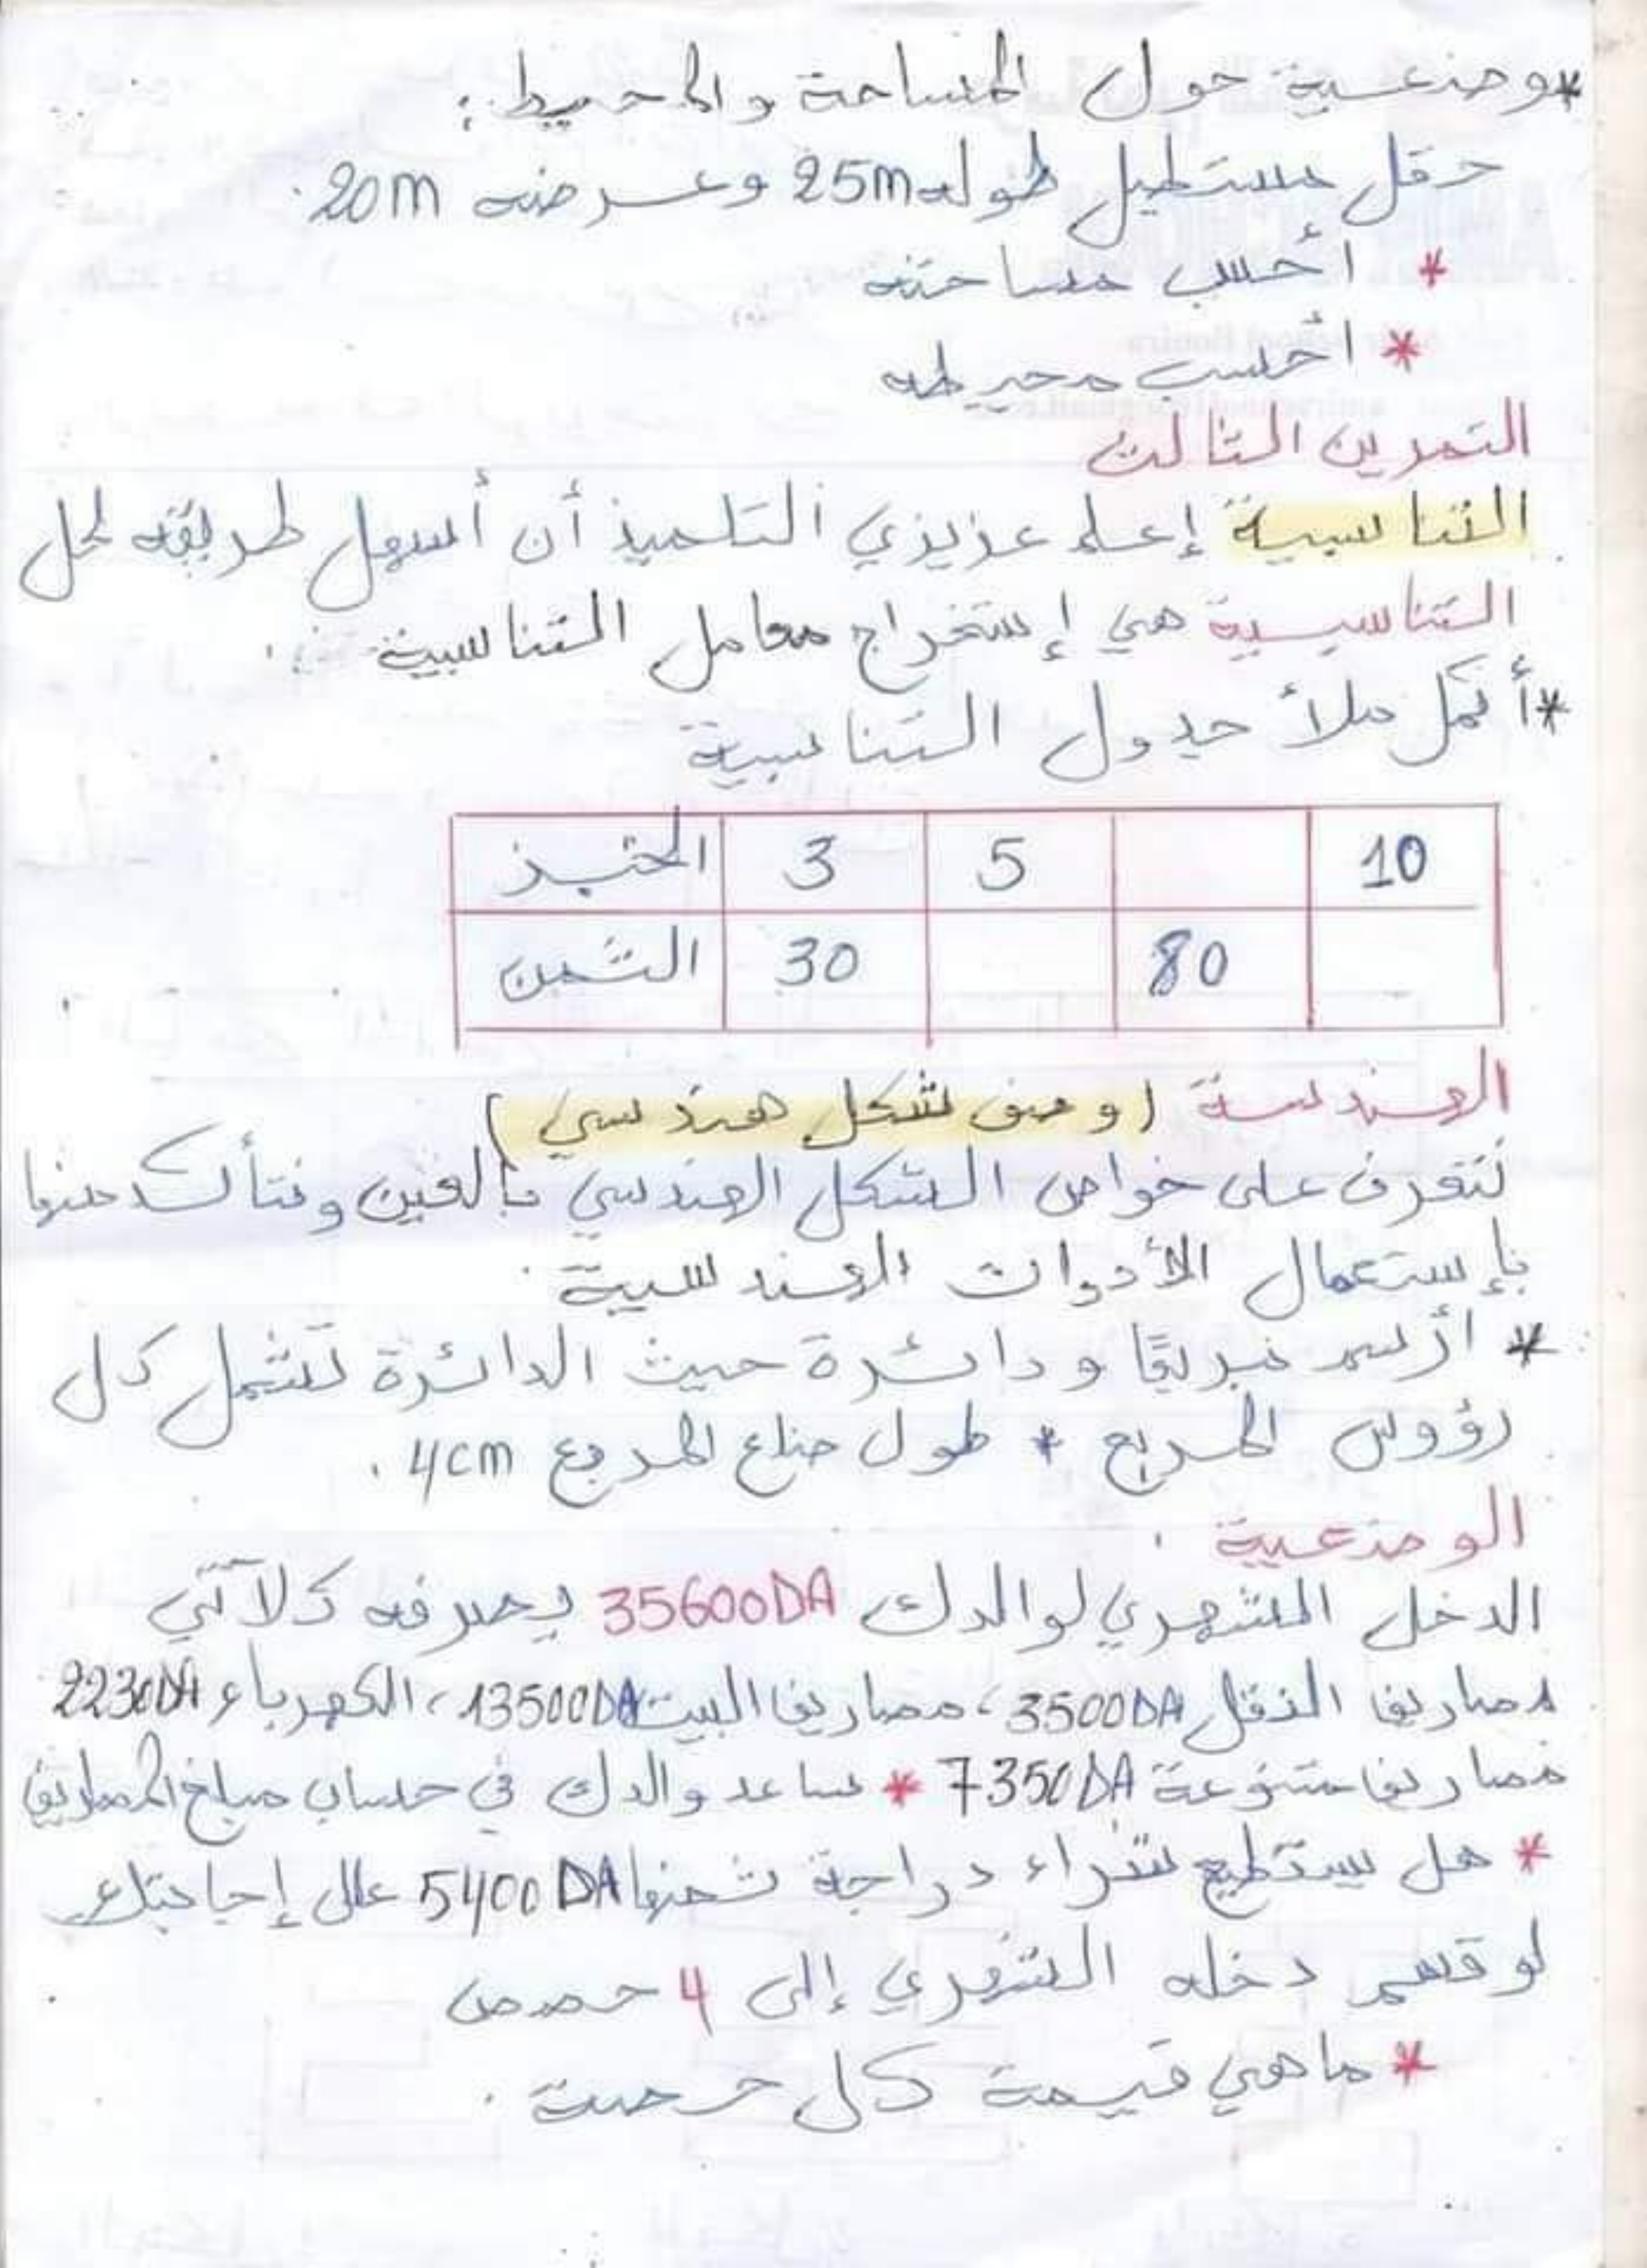 *وضعية حول المساحة والمحيط:
حقل مستطيل طوله 25m وعرضه 20m.
* أحسب مساحته
* أحسب محيطه
التمرين الثالث
التناسبية إعلم عزيزي التلميذ أن أسهل طريقة لحل
التناسبية هي إستخراج معامل التناسبية :
*أكمل ملأ جدول التناسبية
الخبز 3 5 10
الثمن 30 80
الهندسة (وصف شكل هندسي)
نتعرف على خواص الشكل الهندسي بالعين ونتأكد منها
بإستعمال الأدوات الهندسية.
* أرسم مربعًا و دائرة حيث الدائرة تشمل كل
رؤوس المربع * طول ضلع المربع 4cm.
الوضعية.
الدخل الشهري لوالدك 35600DA يصرفه كلآتي
مصاريف النقل 3500DA، مصاريف البيت 13500DA، الكهرباء 2230DA
مصاريف متنوعة 7350DA * ساعد والدك في حساب مبلغ المصاريف
* هل يستطيع شراء دراجة ثمنها 5400DA علل إجابتك.
لو قسم دخله الشهري إلى 4 حصص
* ماهي قيمة كل حصة.